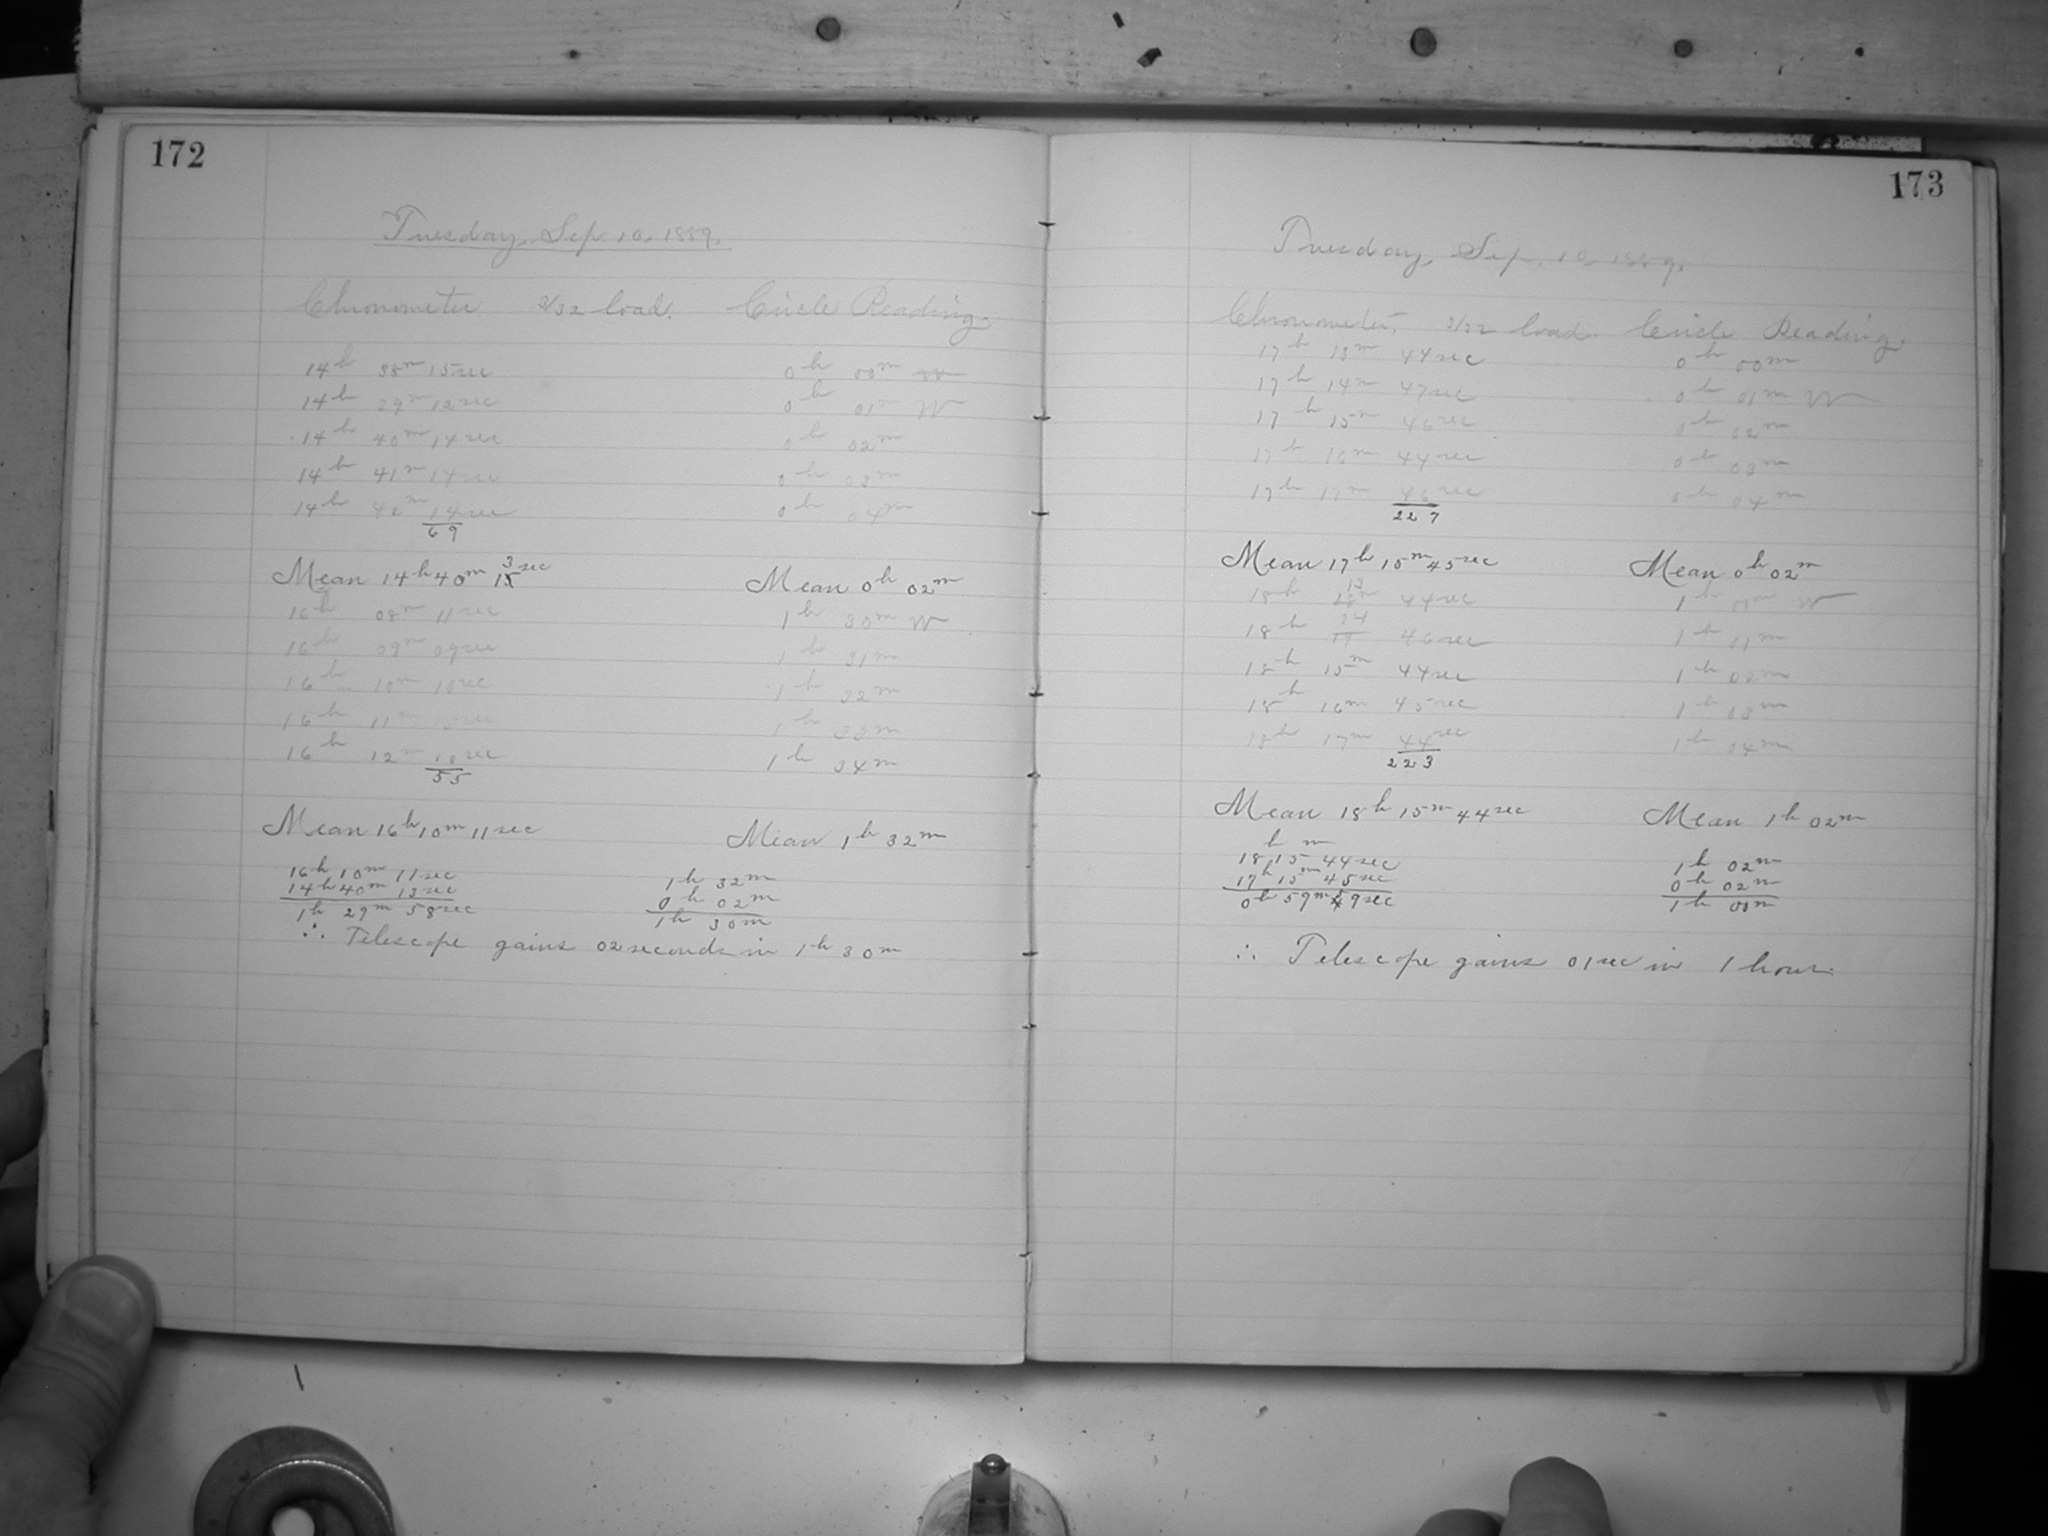 172
Tuesday, Sep. 10, 1889.
Chronometer 3/32 load. Circle Reading.
14h 38m 15sec 0h 00m W
14h 39m 12sec 0h 01m W
14h 40m 14sec 0h 02m
14h 41m 14sec 0h 03m
14h 42m 14sec 0h 04m
69
Mean 14h 40m 13sec Mean 0h 02m
16h 08m 11sec 1h 30m W
16h 09m 09sec 1h 31m
16h 10m 10sec 1h 32m
16h 11m 15sec 1h 33m
16h 12m 10sec 1h 34m
55
Mean 16h 10m 11sec Mean 1h 32m
16h 10m 11sec 1h 32m
14h 40m 13sec 0h 02m
1h 29m 58sec 1h 30m
∴ Telescope gains 02 seconds in 1h 30m
173
Tuesday, Sep. 10, 1889.
Chronometer, 3/32 load. Circle Reading.
17h 13m 44sec 0h 00m
17h 14m 47sec 0h 01m W
17h 15m 46sec 0h 02m
17h 16m 44sec 0h 03m
17h 17m 46sec 0h 04m
227
Mean 17h 15m 45sec Mean 0h 02m
18h 13m 44sec 1h 00m W
18h 14 46sec 1h 01m
18h 15m 44sec 1h 02m
18h 16m 45sec 1h 03m
18h 17m 44sec 1h 04m
223
Mean 18h 15m 44sec Mean 1h 02m
h m
18 15 44sec 1h 02m
17h 15m 45sec 0h 02m
0h 59m 59sec 1h 00m
∴ Telescope gains 01sec in 1 hour.